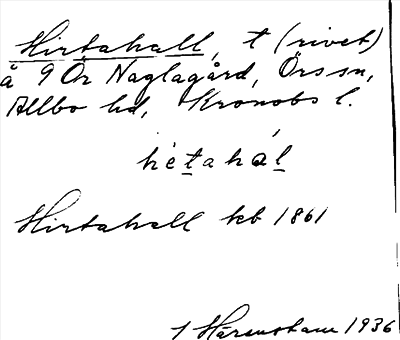 Hirtahall, t (rivet)
å 9 Ör Naglagård, Örs sn,
Allbo hd, Kronobs l.
hètahál
Hirtahall kb 1861
1936